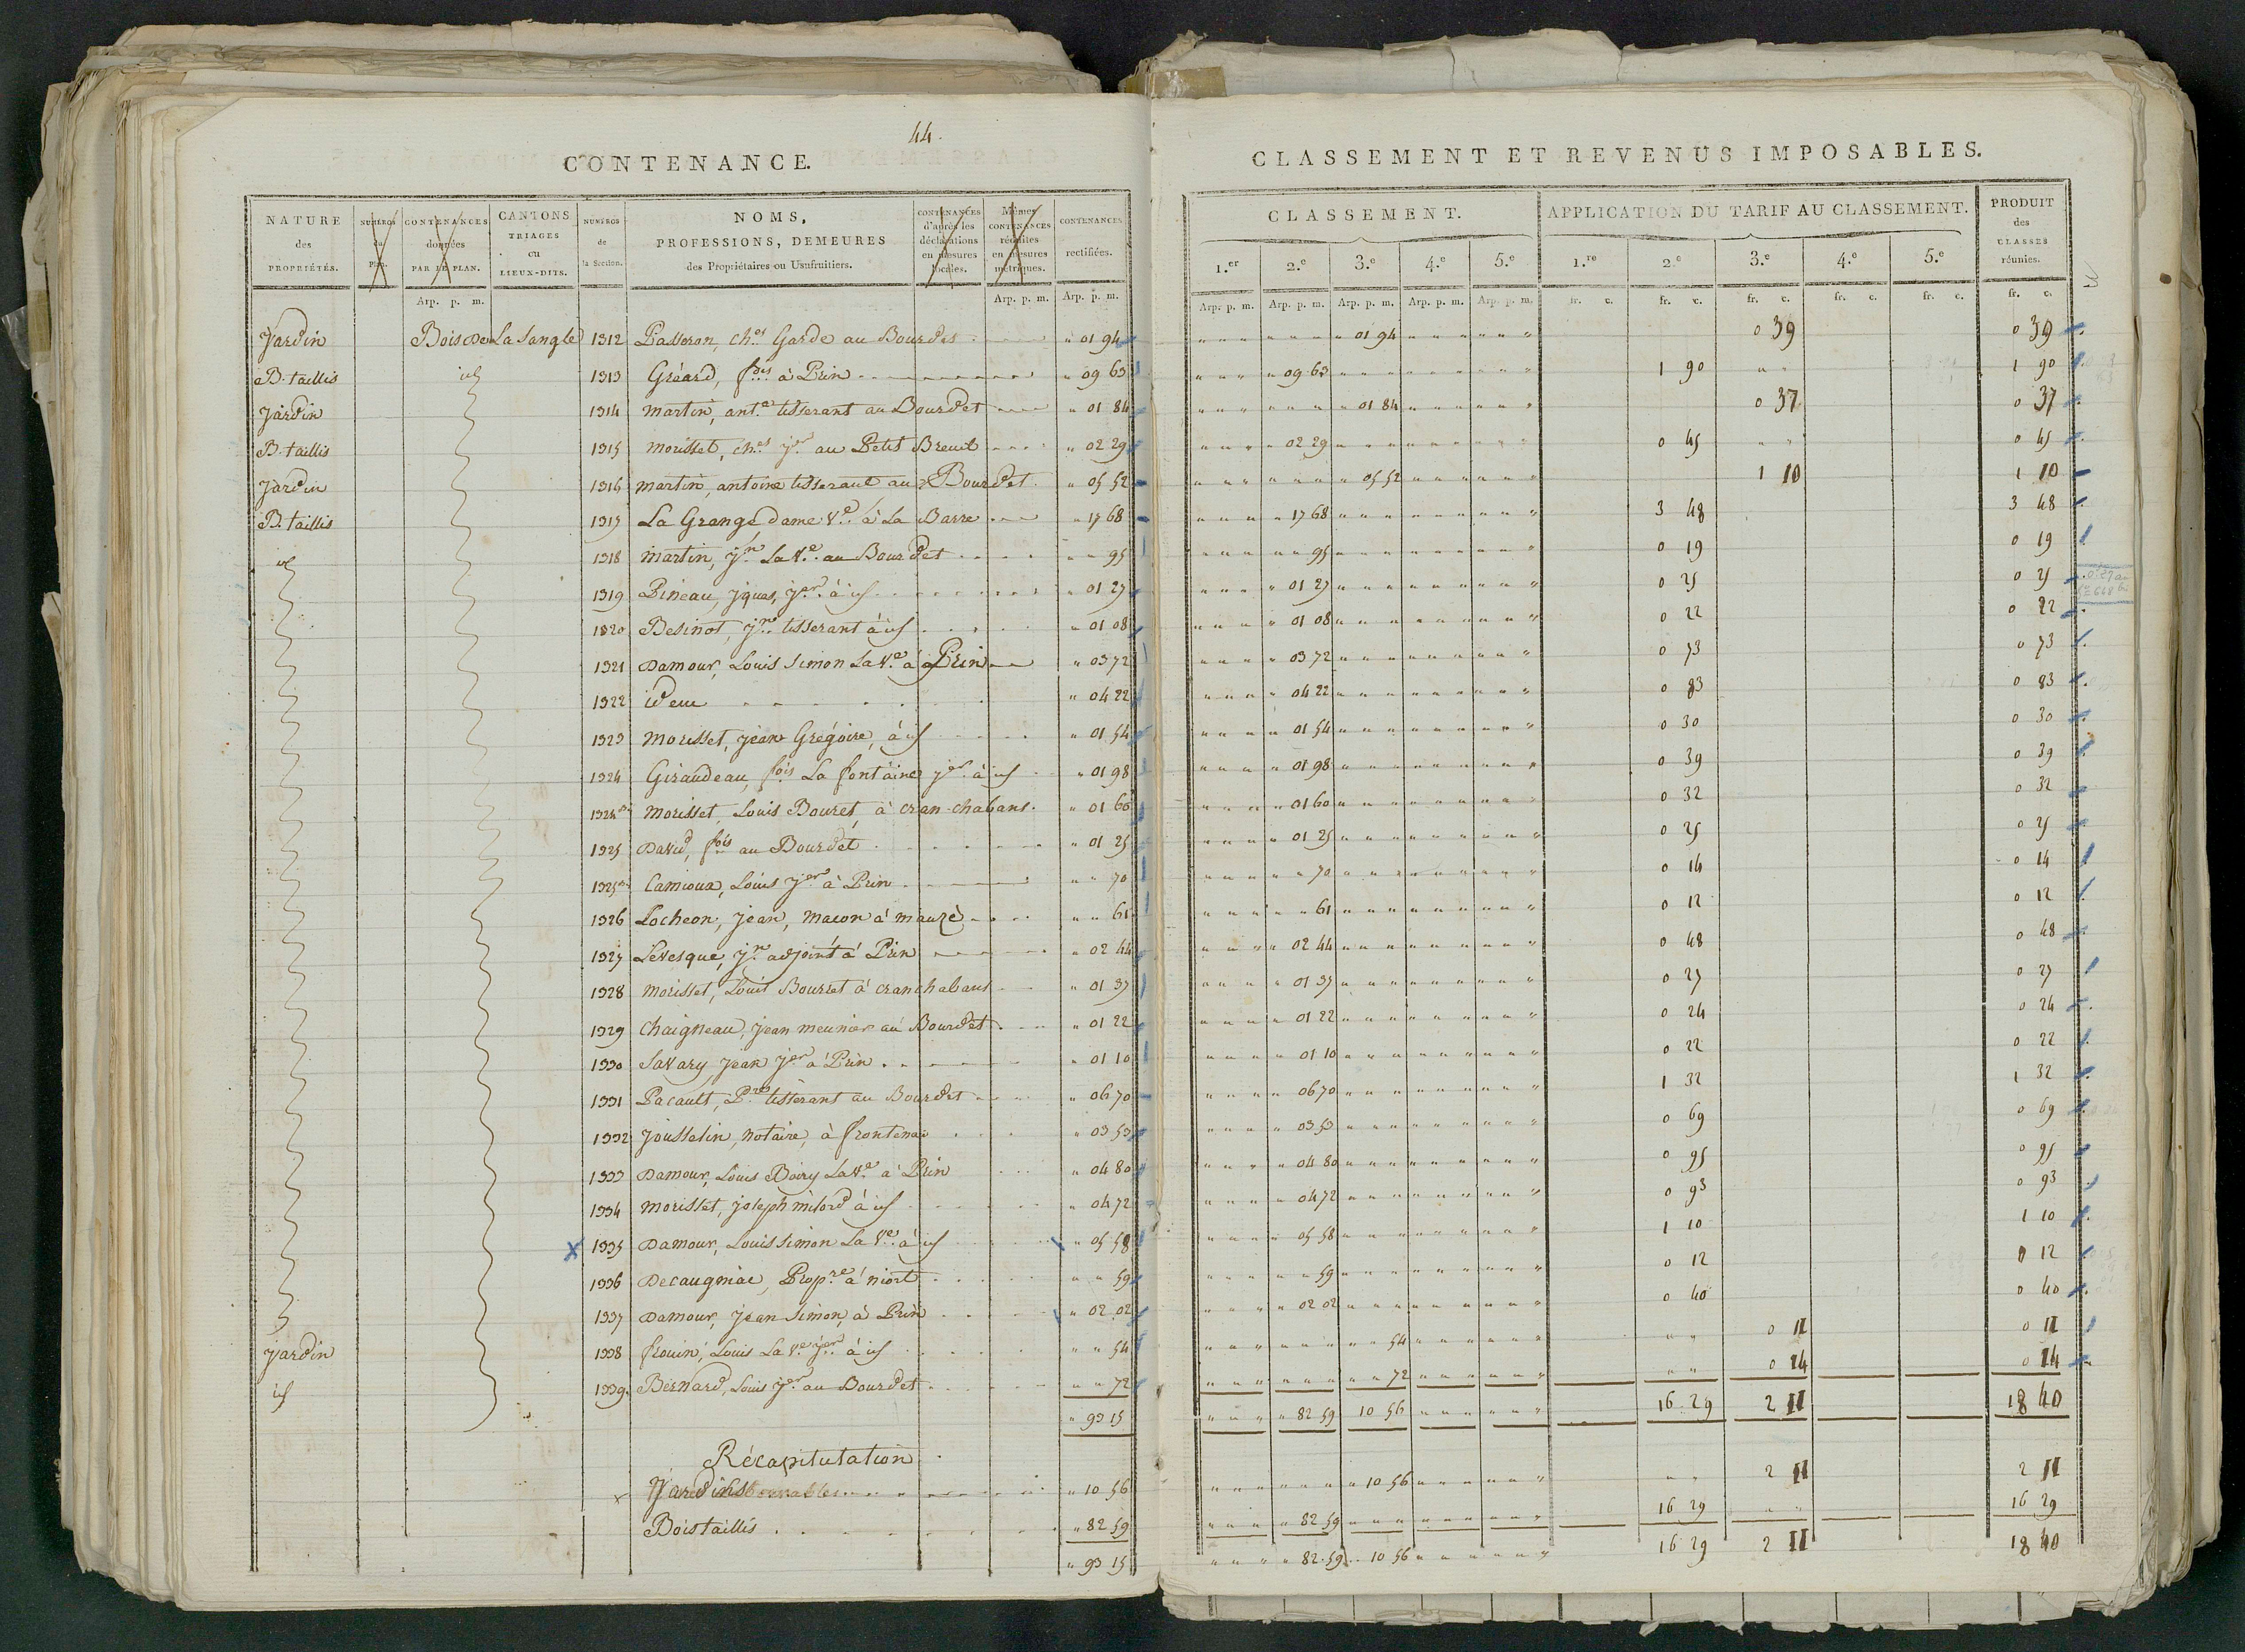 44.
CONTENANCE.
NATURE des PROPRIÉTÉS.
NUMÉROS du PLAN.
CONTENANCES données PAR LE PLAN.
CANTONS TRIAGES ou LIEUX-DITS.
NUMÉROS de la Section.
NOMS, PROFESSIONS, DEMEURES des Propriétaires ou Usufruitiers.
CONTENANCES d'après les déclarations en mesures locales.
Mêmes CONTENANCES réduites en mesures métriques.
CONTENANCES rectifiées.
Arp. p. m. Arp. p. m. Arp. p. m.
Jardin Bois de La Sangle 1312 Passeron, ch.es Garde au Bourdet " 01 94
B. taillis id 1313 Gréard, f.ois à Prin " 09 63
Jardin 1314 Martin, ant.e tisserant au Bourdet " 01 84
B. taillis 1315 Morisset, ch.es j.er au Petit Breuil " 02 29
Jardin 1316 Martin, antoine tisserant au Bourdet " 05 52
B. taillis 1317 La Grange dame V.e à La Barre " 17 68
id 1318 Martin, j.n La V.e au Bourdet " " 95
1319 Pineau, jques, j.er à id " 01 27
1320 Besinot, j.n tisserant à id " 01 08
1321 Damour, Louis Simon La V.e à Prin " 03 72
1322 idem " 04 22
1323 Morisset, jean Grégoire, à id " 01 54
1324 Giraudeau, fois La fontaine j.er à id " 01 98
1324 bis Morisset, Louis Bouret, à cran-chabans " 01 60
1325 David, fois au Bourdet " 01 25
1325 bis Camioux, Louis j.er à Prin " " 70
1326 Locheon, jean, macon à mauzé " " 61
1327 Levesque, j.n adjoint à Prin " 02 44
1328 Morisset, Louis Bourret à cranchabans " 01 37
1329 Chaigneau, jean meunier au Bourdet " 01 22
1330 Savary jean j.er à Prin " 01 10
1331 Pacault, P.re tisserant au Bourdet " 06 70
1332 Jousselin, notaire, à frontenai " 03 53
1333 Damour, Louis Boiry La V.e à Prin " 04 80
1334 Morisset, joseph milord à id " 04 72
X 1335 Damour, Louis Simon La V.e à id " 05 58
1336 Decaugniac, Prop.re à niort " " 59
1337 Damour, jean Simon, à Prin " 02 02
Jardin 1338 frouin, Louis La V.e j.er à id " " 54
id 1339 Bernard, Louis j.er au Bourdet " " 72
" 93 15
Récapitulation
Jardins " 10 56
Bois taillis " 82 59
" 93 15
CLASSEMENT ET REVENUS IMPOSABLES.
CLASSEMENT. APPLICATION DU TARIF AU CLASSEMENT. PRODUIT des CLASSES réunies.
1.er 2.e 3.e 4.e 5.e 1.re 2.e 3.e 4.e 5.e
Arp. p. m. Arp. p. m. Arp. p. m. Arp. p. m. Arp. p. m. fr. c. fr. c. fr. c. fr. c. fr. c. fr. c.
01 94 0 39 0 39
09 63 1 90 1 90
01 84 0 37 0 37
02 29 0 45 0 45
05 52 1 10 1 10
17 68 3 48 3 48
95 0 19 0 19
01 27 0 25 0 25
01 08 0 22 0 22
03 72 0 73 0 73
04 22 0 83 0 83
01 54 0 30 0 30
01 98 0 39 0 39
01 60 0 32 0 32
01 25 0 25 0 25
70 0 14 0 14
61 0 12 0 12
02 44 0 48 0 48
01 37 0 27 0 27
01 22 0 24 0 24
01 10 0 22 0 22
06 70 1 32 1 32
03 53 0 69 0 69
04 80 0 95 0 95
04 72 0 93 0 93
05 58 1 10 1 10
59 0 12 0 12
02 02 0 40 0 40
54 0 11 0 11
72 0 14 0 14
82 59 10 56 16 29 2 11 18 40
10 56 2 11 2 11
82 59 16 29 16 29
82 59 10 56 16 29 2 11 18 40